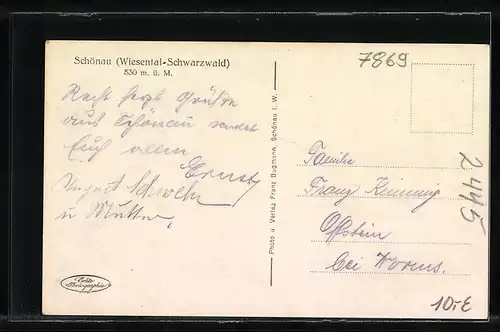 Schönau (Wiesental-Schwarzwald)
530 m. ü. M.
7869
Recht herzl. Grüße
aus Schönau sendet
Euch allen
Ernst
u Mutter,
Photo u. Verlag Franz Bugmann, Schönau i. W.
Familie
Franz Kimmig
Offstein
bei Worms.
2445
10,-E
Echte
Photographie